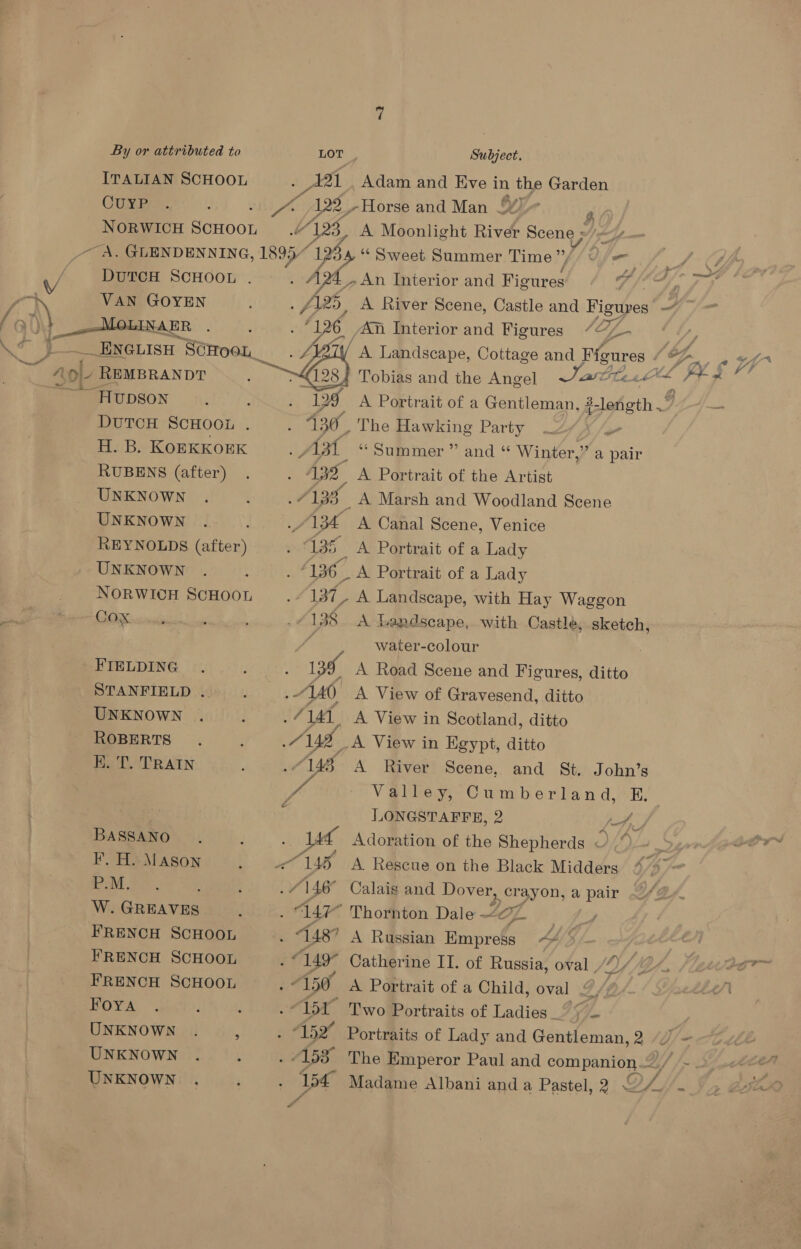 7
By or attributed to LOT Subject.
ITALIAN SCHOOL . 121 Adam and Eve in the Garden
CUYP . . . 122 Horse and Man
NORWICH SCHOOL . 123 A Moonlight River Scene
A. GLENDENNING, 1895 123A “Sweet Summer Time”
DUTCH SCHOOL . . 124 An Interior and Figures
VAN GOYEN . . 125 A River Scene, Castle and Figures
MOLINAER . . . 126 An Interior and Figures
ENGLISH SCHOOL . 127 A Landscape, Cottage and Figures
REMBRANDT . 128 Tobias and the Angel
HUDSON . . . 129 A Portrait of a Gentleman, 3-length
DUTCH SCHOOL . . 130 The Hawking Party
H. B. KOEKKOEK . 131 “Summer” and “Winter,” a pair
RUBENS (after) . . 132 A Portrait of the Artist
UNKNOWN . . . 133 A Marsh and Woodland Scene
UNKNOWN . . . 134 A Canal Scene, Venice
REYNOLDS (after) . 135 A Portrait of a Lady
UNKNOWN . . . 136 A Portrait of a Lady
NORWICH SCHOOL . 137 A Landscape, with Hay Waggon
COX . . . . 138 A Landscape, with Castle, sketch,
water-colour
FIELDING . . . 139 A Road Scene and Figures, ditto
STANFIELD . . . 140 A View of Gravesend, ditto
UNKNOWN . . . 141 A View in Scotland, ditto
ROBERTS . . . 142 A View in Egypt, ditto
E. T. TRAIN . . 143 A River Scene, and St. John's
Valley, Cumberland, E.
LONGSTAFFE, 2
BASSANO . . . 144 Adoration of the Shepherds
F. H. MASON . . 145 A Rescue on the Black Midders
P.M. . . . 146 Calais and Dover, crayon, a pair
W. GREAVES . . 147 Thornton Dale
FRENCH SCHOOL . 148 A Russian Empress
FRENCH SCHOOL . 149 Catherine II. of Russia, oval
FRENCH SCHOOL . 150 A Portrait of a Child, oval
FOYA . . . . 151 Two Portraits of Ladies
UNKNOWN . . . 152 Portraits of Lady and Gentleman, 2
UNKNOWN . . . 153 The Emperor Paul and companion
UNKNOWN . . . 154 Madame Albani and a Pastel, 2